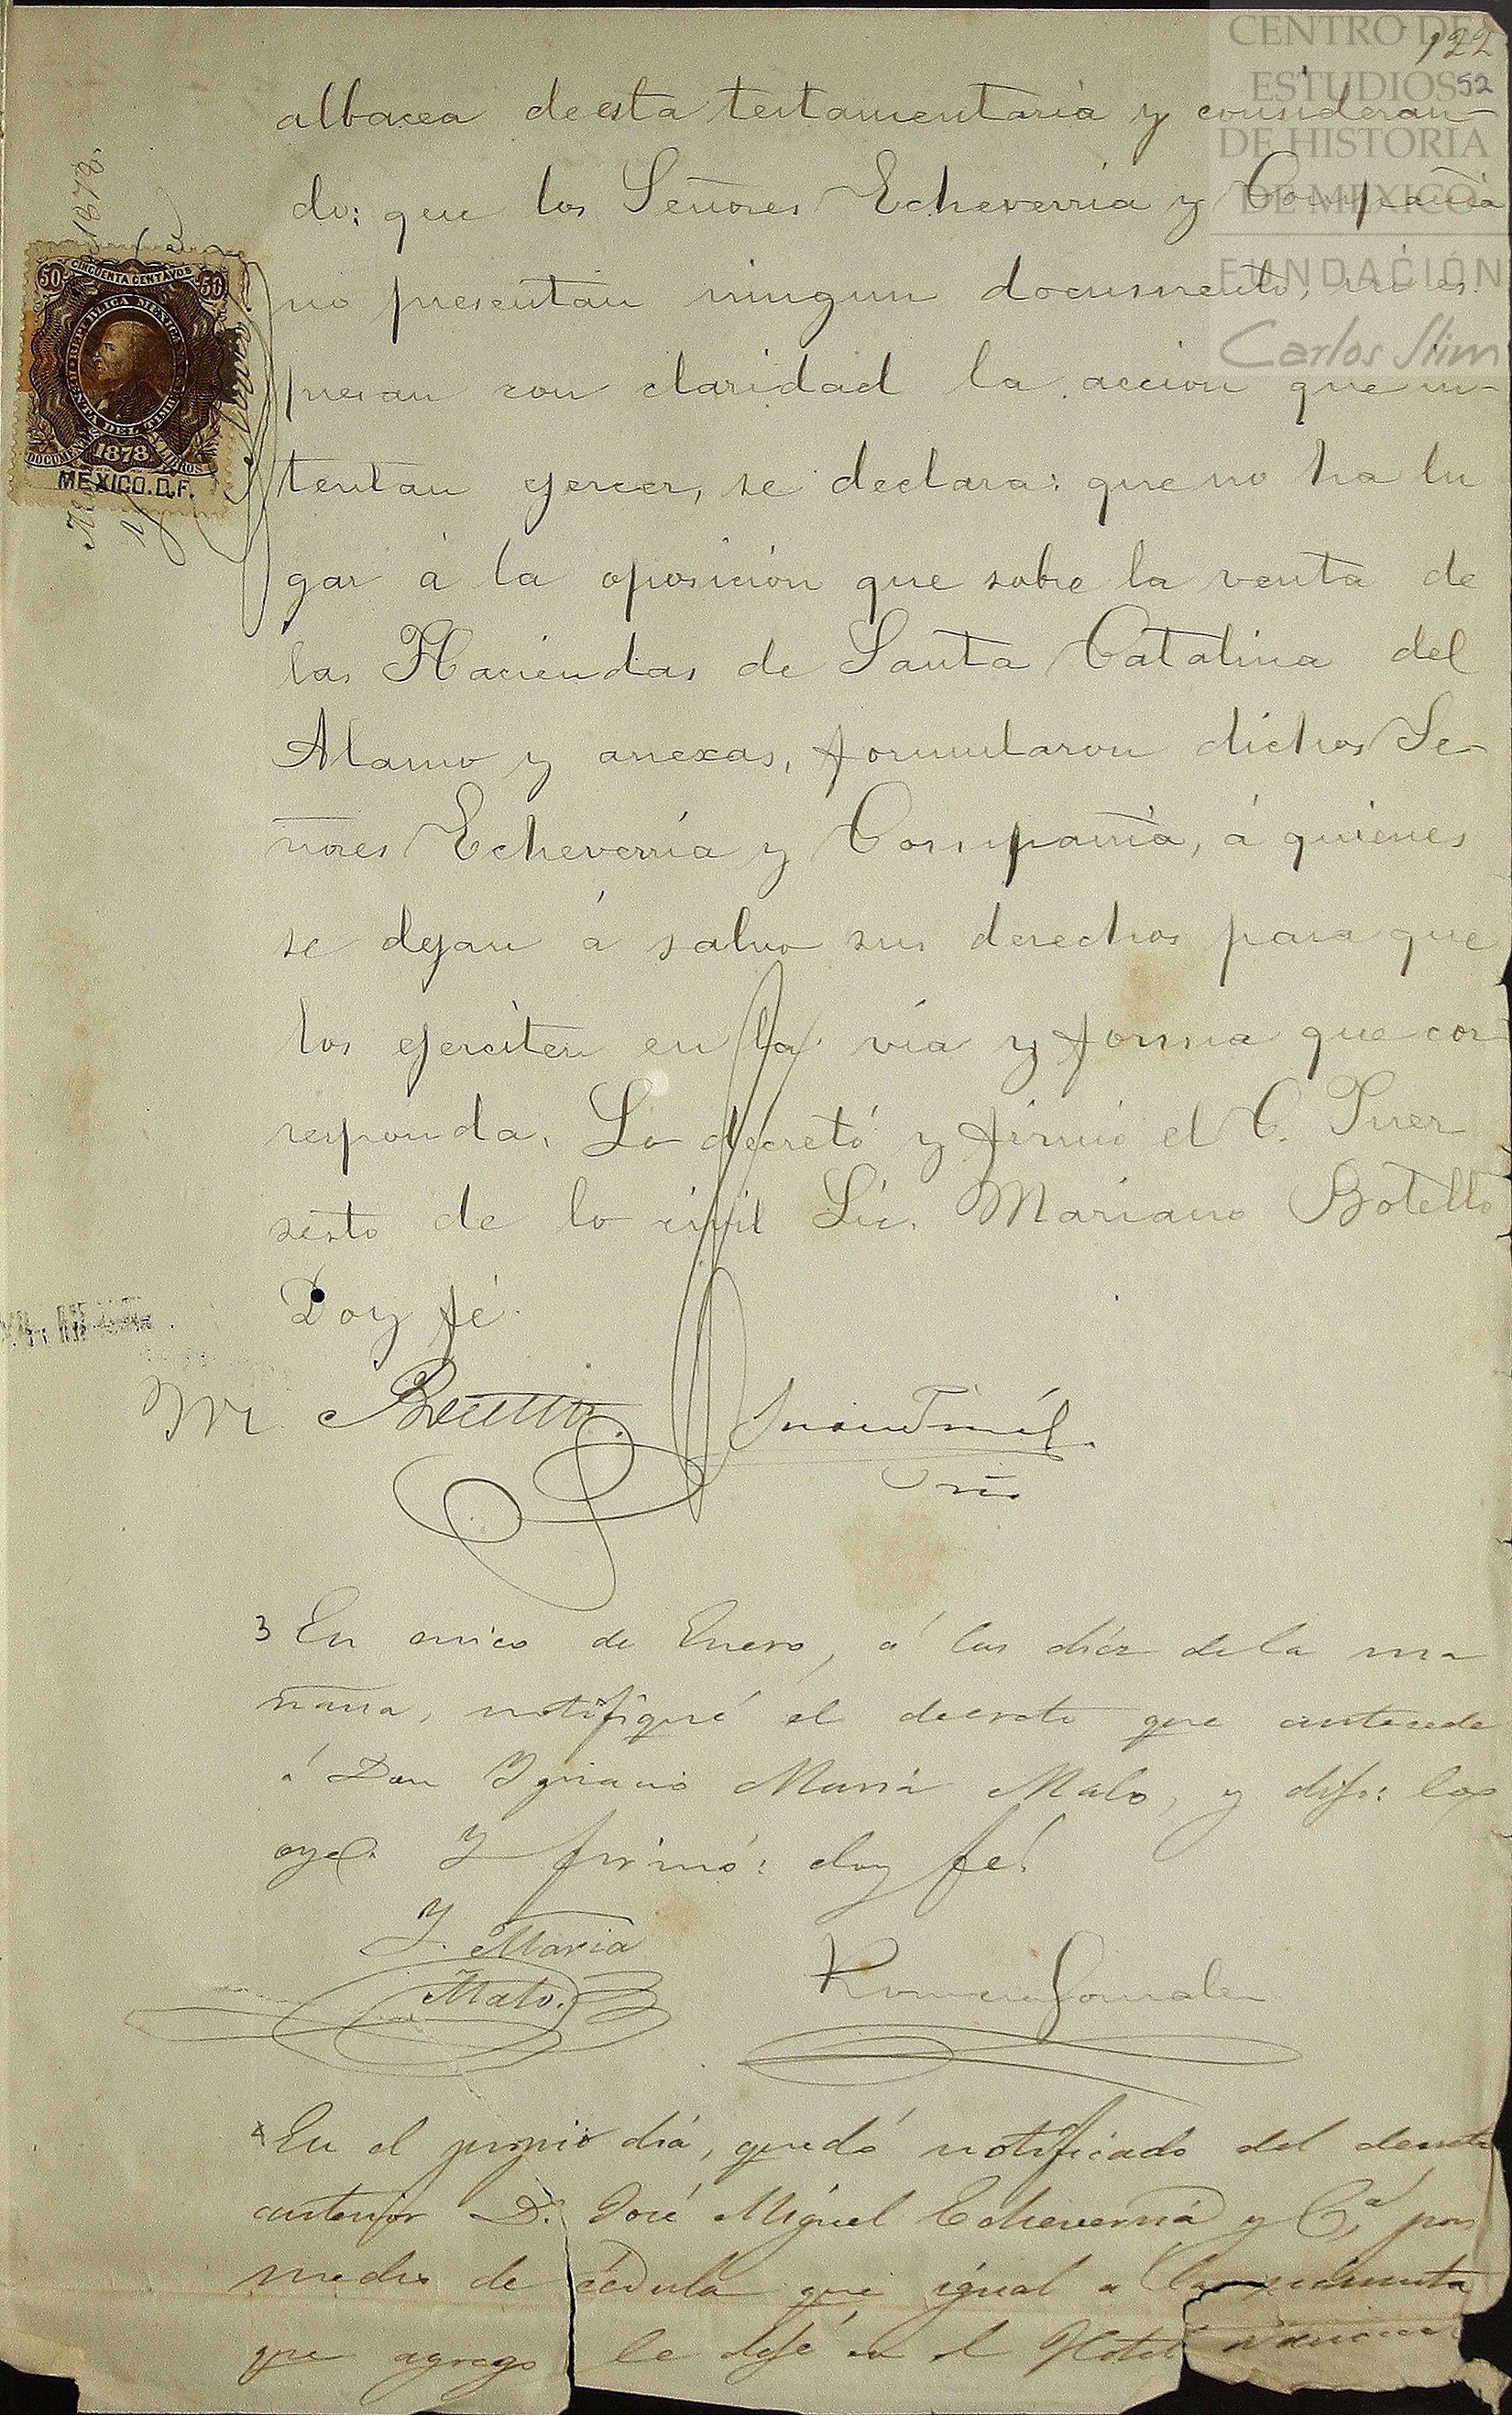 CENTRO DE
ESTUDIOS
DE HISTORIA
DE MEXICO
FUNDACIÓN
Carlos Slim
122
52
albacea de esta testamentaria y consideran-
do: que los Señores Echeverria y Compañia
no presentan ningun documento, ni es
presan con claridad la accion que in-
tentan ejercer, se declara: que no ha lu
gar á la oposicion que sobre la venta de
las Haciendas de Santa Catalina del
Alamo y anexas, formularon dichos Se-
ñores Echeverria y Compañia, á quienes
se dejan á salvo sus derechos para que
los ejerciten en la via y forma que cor
responda. Lo decretó y firmó el C. Juez
sesto de lo civil Lic. Mariano Botello
Doy fé.
1878.
50 CINCUENTA CENTAVOS 50
REPUBLICA MEXICANA
RENTA DEL TIMBRE
DOCUMENTOS Y LIBROS
1878
MEXICO. D.F.
M Botello
3 En cinco de Enero, á las diez de la ma
ñana, notifiqué el decreto que antecede
á Don Ygnacio Maria Malo, y dijo: lo
oye. Y firmó: doy fé.
Y. Maria
Malo.
Romero Gonzalez
4 En el propio dia, quedó notificado del decreto
anterior D. José Miguel Echeverria y Cª, por
medio de cédula que igual a la
que agrego le dejé en el Hotel Nacional